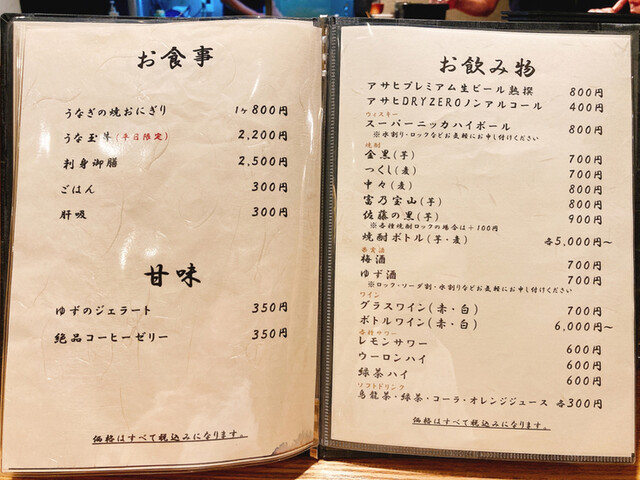 お食事
うなぎの焼おにぎり 1ヶ800円
うな玉丼(平日限定) 2,200円
刺身御膳 2,500円
ごはん 300円
肝吸 300円
甘味
ゆずのジェラート 350円
絶品コーヒーゼリー 350円
価格はすべて税込みになります。
お飲み物
アサヒプレミアム生ビール熟撰 800円
アサヒDRYZEROノンアルコール 400円
ウィスキー
スーパーニッカハイボール 800円
※水割り・ロックなどお気軽にお申し付けください
焼酎
金黒(芋) 700円
つくし(麦) 700円
中々(麦) 800円
富乃宝山(芋) 800円
佐藤の黒(芋) 900円
※各種焼酎ロックの場合は+100円
焼酎ボトル(芋・麦) 各5,000円~
果実酒
梅酒 700円
ゆず酒 700円
※ロック・ソーダ割・水割りなどお気軽にお申し付けください
ワイン
グラスワイン(赤・白) 700円
ボトルワイン(赤・白) 6,000円~
各種サワー
レモンサワー 600円
ウーロンハイ 600円
緑茶ハイ 600円
ソフトドリンク
烏龍茶・緑茶・コーラ・オレンジジュース 各300円
価格はすべて税込みになります。